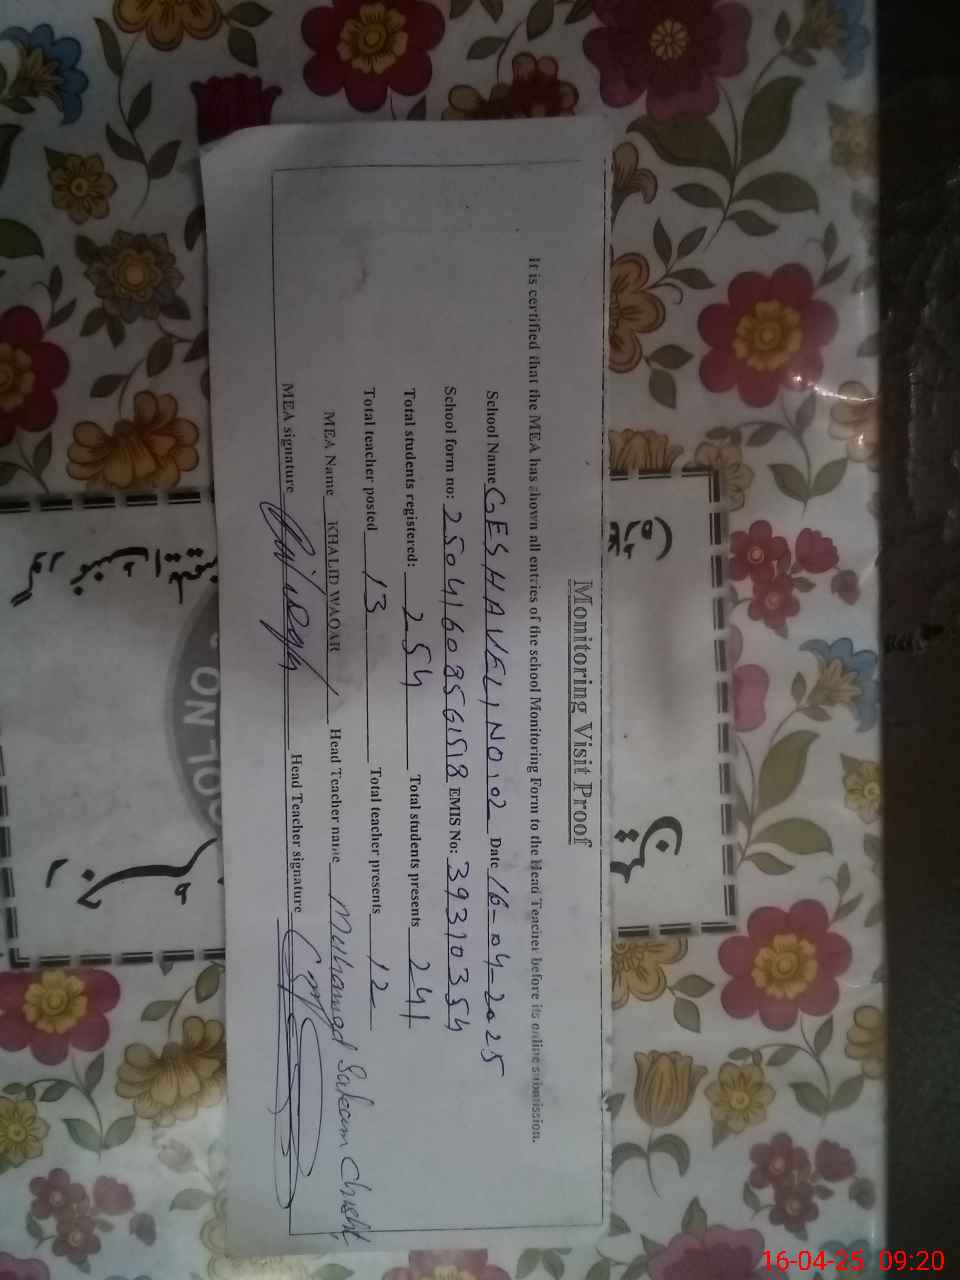 Monitoring Visit Proof
It is certified that the MEA has shown all entries of the school Monitoring Form to the Head Teacher before its online submission.
School Name GES HAVELI NO.02 Date 16-04-2025
School form no: 25041608561518 EMIS No: 39310354
Total students registered: 254 Total students presents 241
Total teacher posted 13 Total teacher presents 12
MEA Name KHALID WAQAR Head Teacher name Muhamad Saleem Chishti
MEA signature Head Teacher signature
OOL NO
16-04-25 09:20